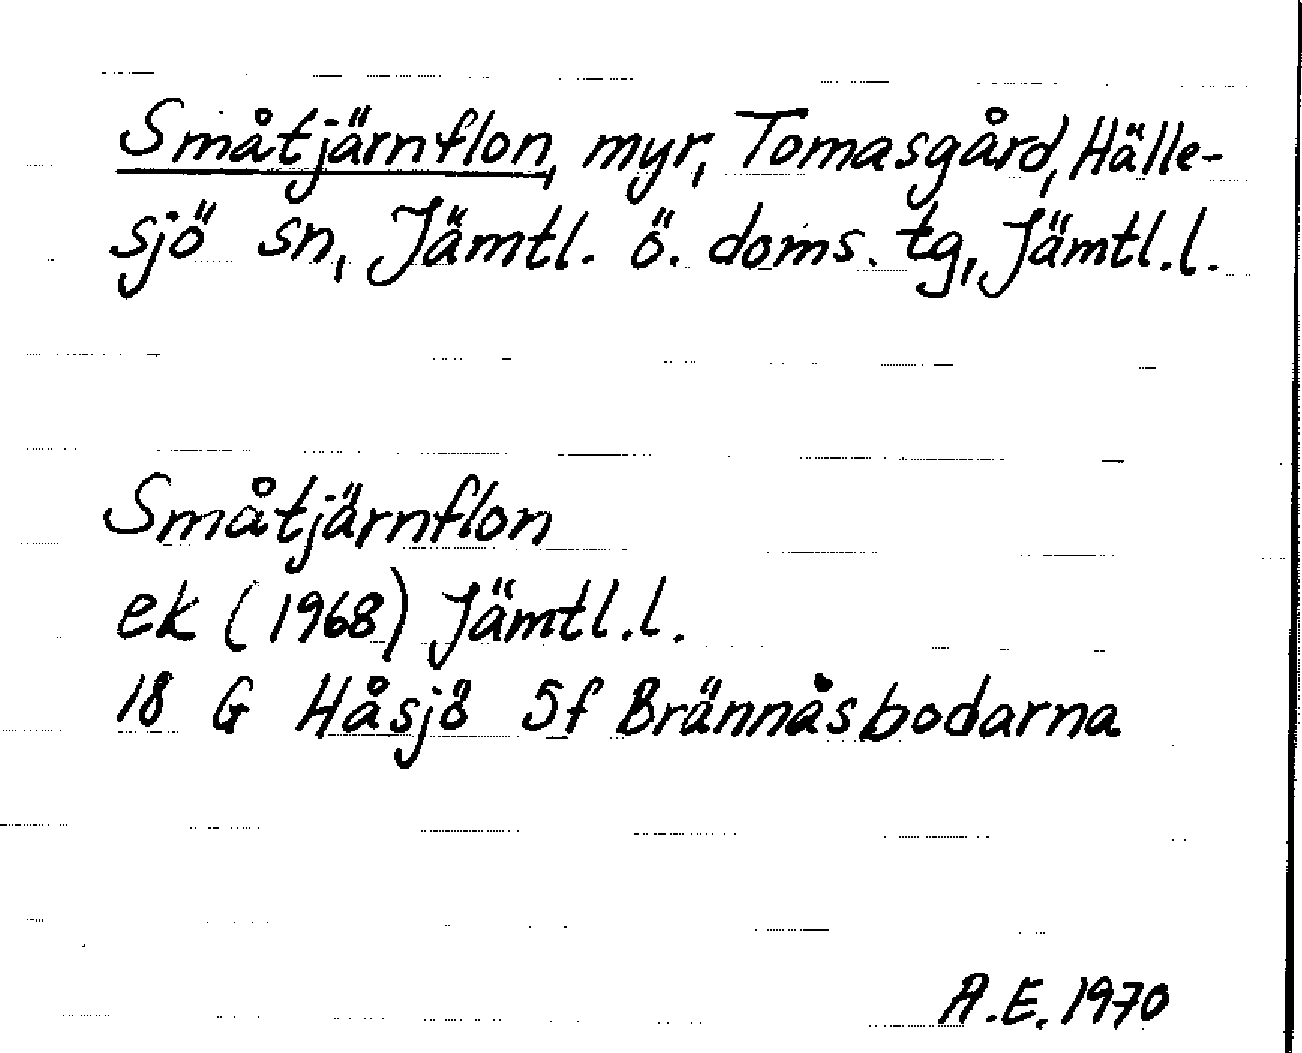 Småtjärnflon, myr, Tomasgård, Hälle-
sjö sn, Jämtl. ö. doms. tg, Jämtl.l.
Småtjärnflon
ek (1968) Jämtl.l.
18 G Håsjö 5f Brännåsbodarna
A.E. 1970